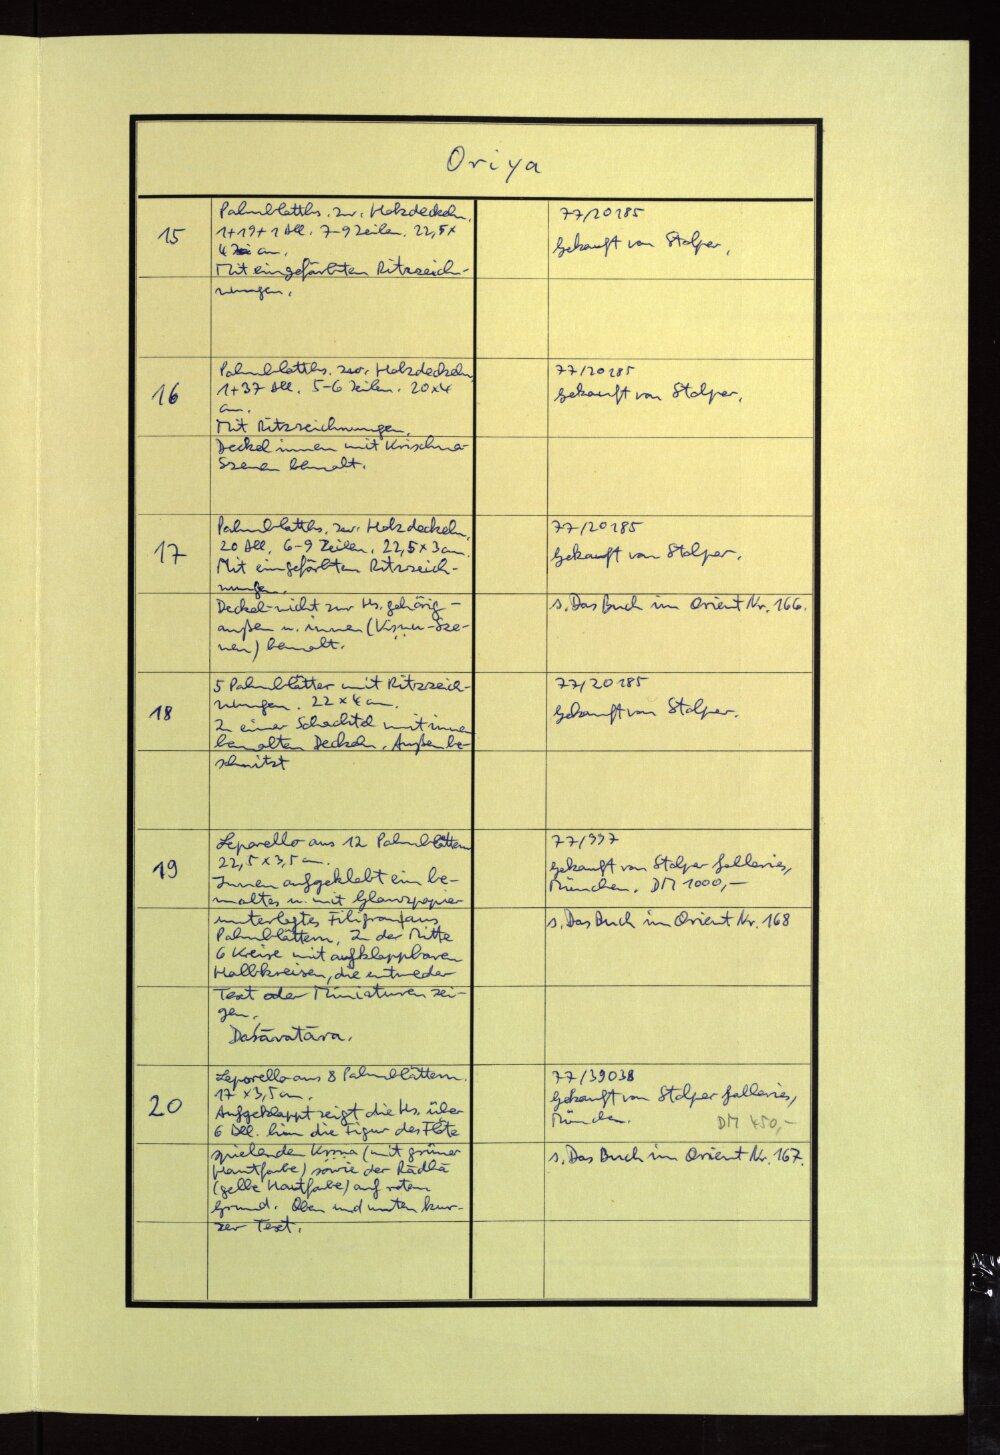 Oriya
15
Palmblatths. zw. Holzdeckeln,
1+19+1 Bll. 7-9 Zeilen. 22,5×
4 cm.
Mit eingefärbten Ritzzeich-
nungen.
77/20185
Gekauft von Stolper.
16
Palmblatths. zw. Holzdeckeln,
1+37 Bll. 5-6 Zeilen. 20×4
cm.
Mit Ritzzeichnungen.
Deckel innen mit Krischna-
Szenen bemalt.
77/20185
Gekauft von Stolper.
17
Palmblatths. zw. Holzdeckeln,
20 Bll. 6-9 Zeilen. 22,5×3 cm.
Mit eingefärbten Ritzzeich-
nungen.
Deckel-nicht zur Hs. gehörig-
außen u. innen (Viṣṇu-Sze-
nen) bemalt.
77/20185
Gekauft von Stolper.
s. Das Buch im Orient Nr. 166.
18
5 Palmblätter mit Ritzzeich-
nungen. 22×4 cm.
In einer Schachtel mit innen
bemalten Deckeln. Außen be-
schnitzt
77/20185
Gekauft von Stolper.
19
Leporello aus 12 Palmblättern
22,5×3,5 cm.
Innen aufgeklebt ein be-
maltes u. mit Glanzpapier
unterlegtes Filigran aus
Palmblättern. In der Mitte
6 Kreise mit aufklappbaren
Halbkreisen, die entweder
Text oder Miniaturen zei-
gen.
Daśāvatāra.
77/997
Gekauft von Stolper Galleries,
München. DM 1000,-
s. Das Buch im Orient Nr. 168
20
Leporello aus 8 Palmblättern.
17×3,5 cm.
Aufgeklappt zeigt die Hs. über
6 Bll. hin die Figur des Flöte
spielenden Kṛṣṇa (mit grüner
Hautfarbe) sowie der Rādhā
(gelbe Hautfarbe) auf rotem
Grund. Oben und unten kur-
zer Text.
77/39038
Gekauft von Stolper Galleries,
München. DM 450,-
s. Das Buch im Orient Nr. 167.